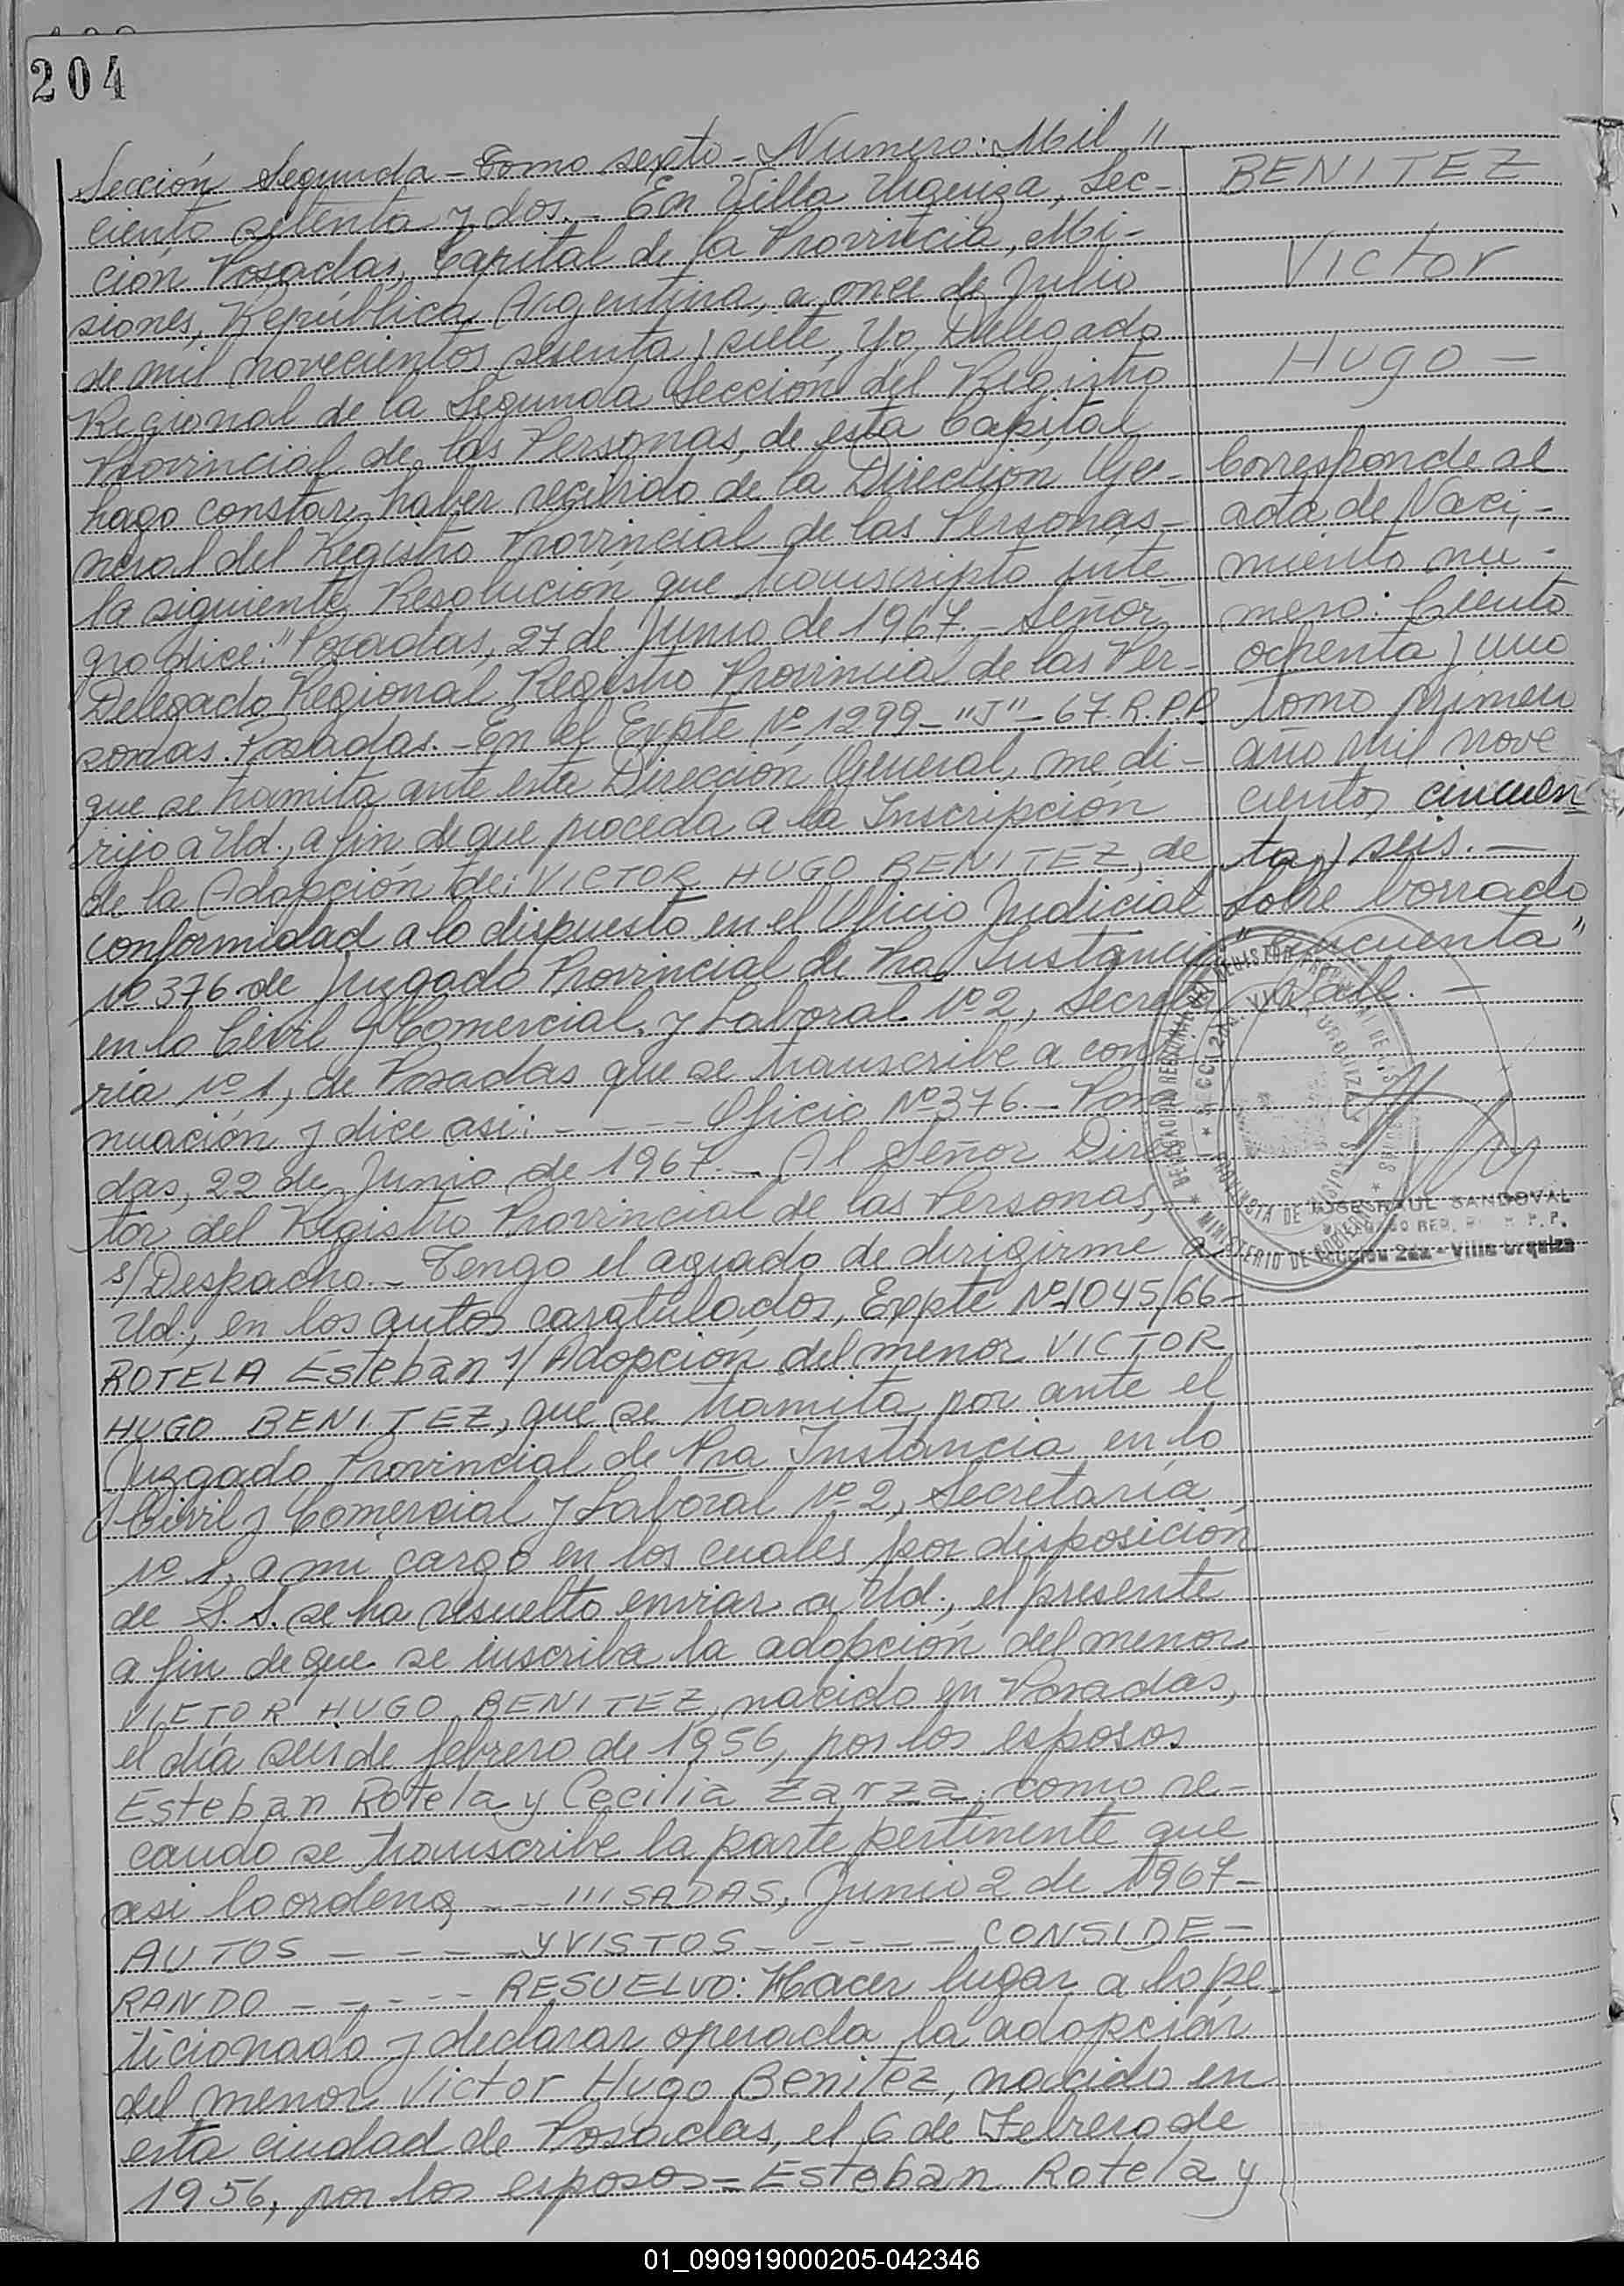 204
Sección Segunda - Tomo sexto - Numero: Mil "
ciento setenta y dos.- En Villa Urquiza, Sec-
ción Posadas, Capital de la Provincia, Mi-
siones, República Argentina, a once de Julio
de mil novecientos sesenta y siete, Yo Delegado
Regional de la Segunda Sección del Registro
Provincial de las Personas, de esta Capital
hago constar, haber recibido de la Dirección Ge-
neral del Registro Provincial de las Personas-
la siguiente Resolución que transcripto inte-
gro dice: "Posadas, 27 de Junio de 1967.- Señor
Delegado Regional Registro Provincial de las Per-
sonas. Posadas.- En el Expte Nº 1299-"J"-67.R.P.P.
que se tramita ante esta Dirección General, me di-
rijo a Ud., a fin de que proceda a la Inscripción
de la Adopción de: VICTOR HUGO BENITEZ, de
conformidad a lo dispuesto en el Oficio Judicial
Nº 376 de Juzgado Provincial de 1ra Instancia
en lo Civil y Comercial y Laboral Nº 2, Secreta
ría Nº 1, de Posadas que se transcribe a conti
nuación y dice asi: - - - - Oficio Nº 376.- Posa
das, 22 de Junio de 1967.- Al Señor Direc
tor del Registro Provincial de las Personas,
s/Despacho.- Tengo el agrado de dirigirme a
Ud., en los autos caratulados, Expte Nº 1045/66-
ROTELA Esteban s/Adopción del menor VICTOR
HUGO BENITEZ, que se tramita por ante el
Juzgado Provincial de 1ra Instancia en lo
Civil y Comercial y Laboral Nº 2, Secretaría
Nº 1, a mi cargo en los cuales por disposición
de S.S. se ha resuelto enviar a Ud., el presente
a fin de que se inscriba la adopción del menor
VICTOR HUGO BENITEZ, nacido en Posadas,
el día seis de febrero de 1956, por los esposos
Esteban Rotela y Cecilia Zarza, como re-
caudo se transcribe la parte pertinente que
asi lo ordena, - - - ///SADAS, Junio 2 de 1967-
AUTOS - - - - - Y VISTOS - - - - - CONSIDE-
RANDO - - - - - RESUELVO: Hacer lugar a lo pe-
ticionado y declarar operada la adopción
del menor Victor Hugo Benitez, nacido en
esta ciudad de Posadas, el 6 de Febrero de
1956, por los esposos = Esteban Rotela y
BENITEZ
Victor
Hugo -
Corresponde al
acta de Naci,-
miento nu-
mero: Ciento
ochenta y uno
Tomo primero
año mil nove
cientos cincuen
ta y seis.-
Sobre borrado
"cincuenta"
Vale.-
JOSE RAUL SANDOVAL
DELEGADO REG. R. P. P.
Sección 2da - Villa Urquiza
01_090919000205-042346